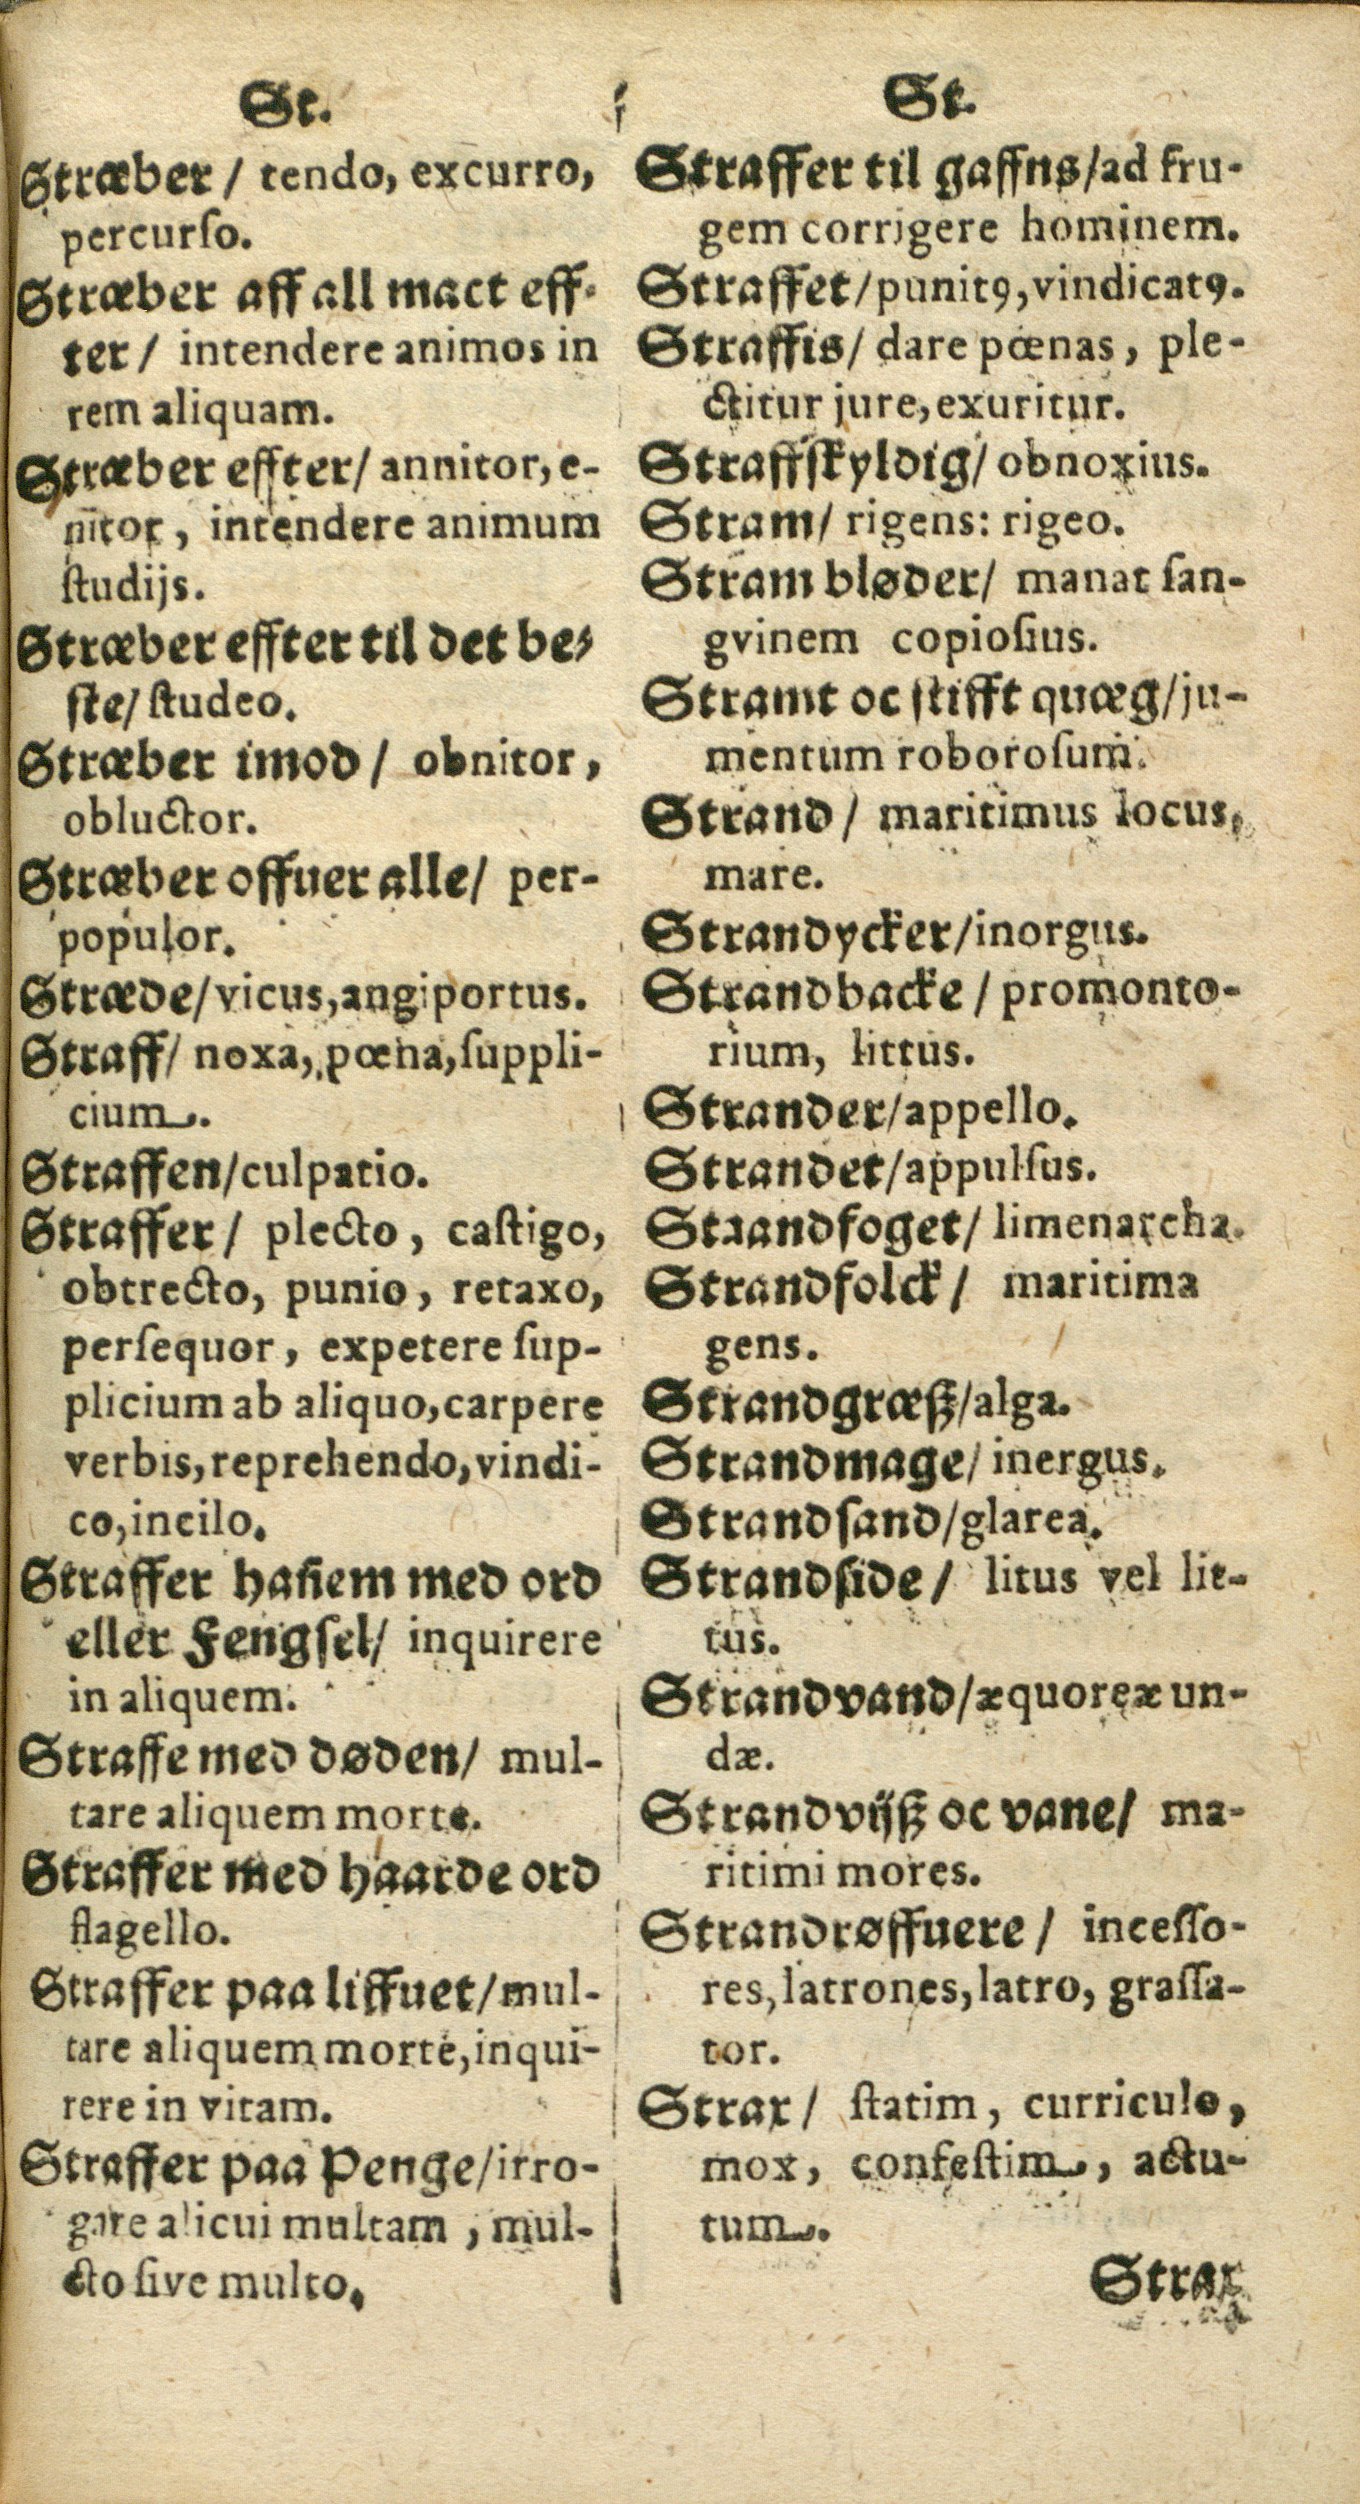 St.
Stræber / tendo, excurro,
percurſo.
Stræber aff all mact eff-
ter / intendere animos in
rem aliquam.
Stræber effter / annitor, e-
nitor, intendere animum
ſtudijs.
Stræber effter til det be-
ſte / ſtudeo.
Stræber imod / obnitor,
obluctor.
Stræber offuer alle / per-
populor.
Stræde / vicus, angiportus.
Straff / noxa, pœna, ſuppli-
cium.
Straffen / culpatio.
Straffer / plecto, caſtigo,
obtrecto, punio, retaxo,
perſequor, expetere ſup-
plicium ab aliquo, carpere
verbis, reprehendo, vindi-
co, incilo.
Straffer hañem med ord
eller Fengſel / inquirere
in aliquem.
Straffe med døden / mul-
tare aliquem morte.
Straffer med haarde ord
flagello.
Straffer paa liffuet / mul-
tare aliquem morte, inqui-
rere in vitam.
Straffer paa Penge / irro-
gare alicui multam, mul-
cto ſive multo.
St.
Straffer til gaffns / ad fru-
gem corrigere hominem.
Straffet / punitꝰ, vindicatꝰ.
Straffis / dare pœnas, ple-
ctitur jure, exuritur.
Straffſkyldig / obnoxius.
Stram / rigens: rigeo.
Stram bløder / manat ſan-
gvinem copioſius.
Stramt oc ſtifft quæg / ju-
mentum roboroſum.
Strand / maritimus locus,
mare.
Strandycker / inorgus.
Strandbacke / promonto-
rium, littus.
Strander / appello.
Strandet / appulſus.
Straandfoget / limenarcha.
Strandfolck / maritima
gens.
Strandgræß / alga.
Strandmage / inergus.
Strandſand / glarea.
Strandſide / litus vel lit-
tus.
Strandvand / æquoreæ un-
dæ.
Strandvijß oc vane / ma-
ritimi mores.
Strandrøffuere / inceſſo-
res, latrones, latro, graſſa-
tor.
Strax / ſtatim, curriculo,
mox, confeſtim, actu-
tum.
Strax